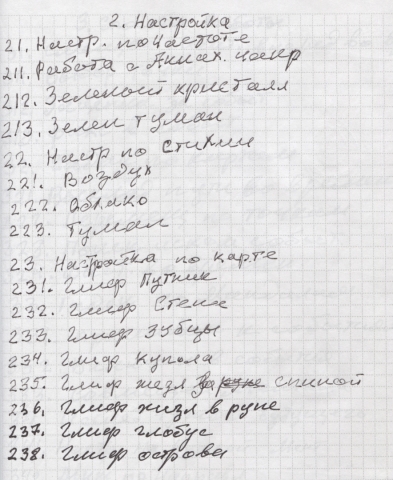 2. Настройка
21. Настр. по частоте
211. Работа с Аннах. чакр
212. Зеленый кристалл
213. Зелен туман
22. Настр по Стихии
221. Воздух
222. Облако
223. Туман
23. Настройка по карте
231. Глиф Путник
232. Глиф Стена
233. Глиф Зубцы
234. Глиф Купола
235. Глиф жезл За спиной
236. Глиф жизл в руне
237. Глиф глобус
238. Глиф острова